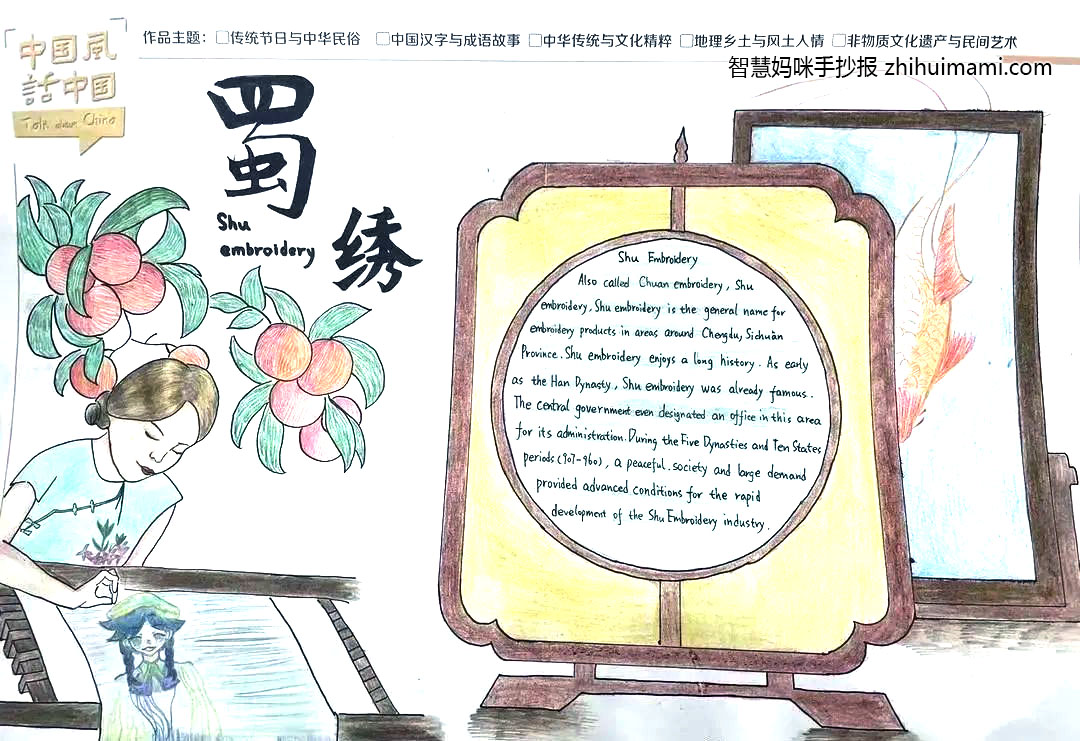 中国風
話中国
Talk about China
作品主题： □传统节日与中华民俗 □中国汉字与成语故事 □中华传统与文化精粹 □地理乡土与风土人情 □非物质文化遗产与民间艺术
智慧妈咪手抄报 zhihuimami.com
蜀
Shu
embroidery
绣
Shu Embroidery
Also called Chuan embroidery, Shu
embroidery, Shu embroidery is the general name for
embroidery products in areas around Chengdu, Sichuan
Province. Shu embroidery enjoys a long history. As early
as the Han Dynasty, Shu embroidery was already famous.
The central government even designated an office in this area
for its administration. During the Five Dynasties and Ten States
periods (907-960), a peaceful society and large demand
provided advanced conditions for the rapid
development of the Shu Embroidery industry.